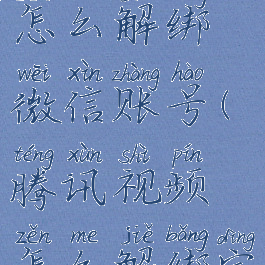 怎么解绑
wēi xìn zhàng hào
微信账号(
téng xùn shì pín
腾讯视频
zěn me jiě bǎng dìng
怎么解绑定